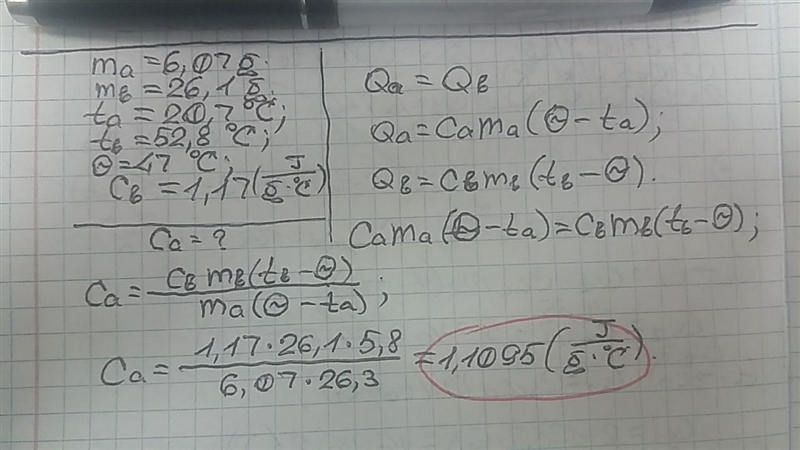 ma = 6,07 g.
mb = 26,1 g.
ta = 20,7 °C;
tb = 52,8 °C;
Θ = 47 °C;
Cb = 1,17 (J / g·°C)
Ca = ?
Qa = Qb
Qa = Cama(Θ - ta);
Qb = Cbmb(tb - Θ).
Cama(Θ - ta) = Cbmb(tb - Θ);
Ca = Cbmb(tb - Θ) / ma(Θ - ta);
Ca = 1,17·26,1·5,8 / 6,07·26,3 = 1,1095 (J / g·°C).